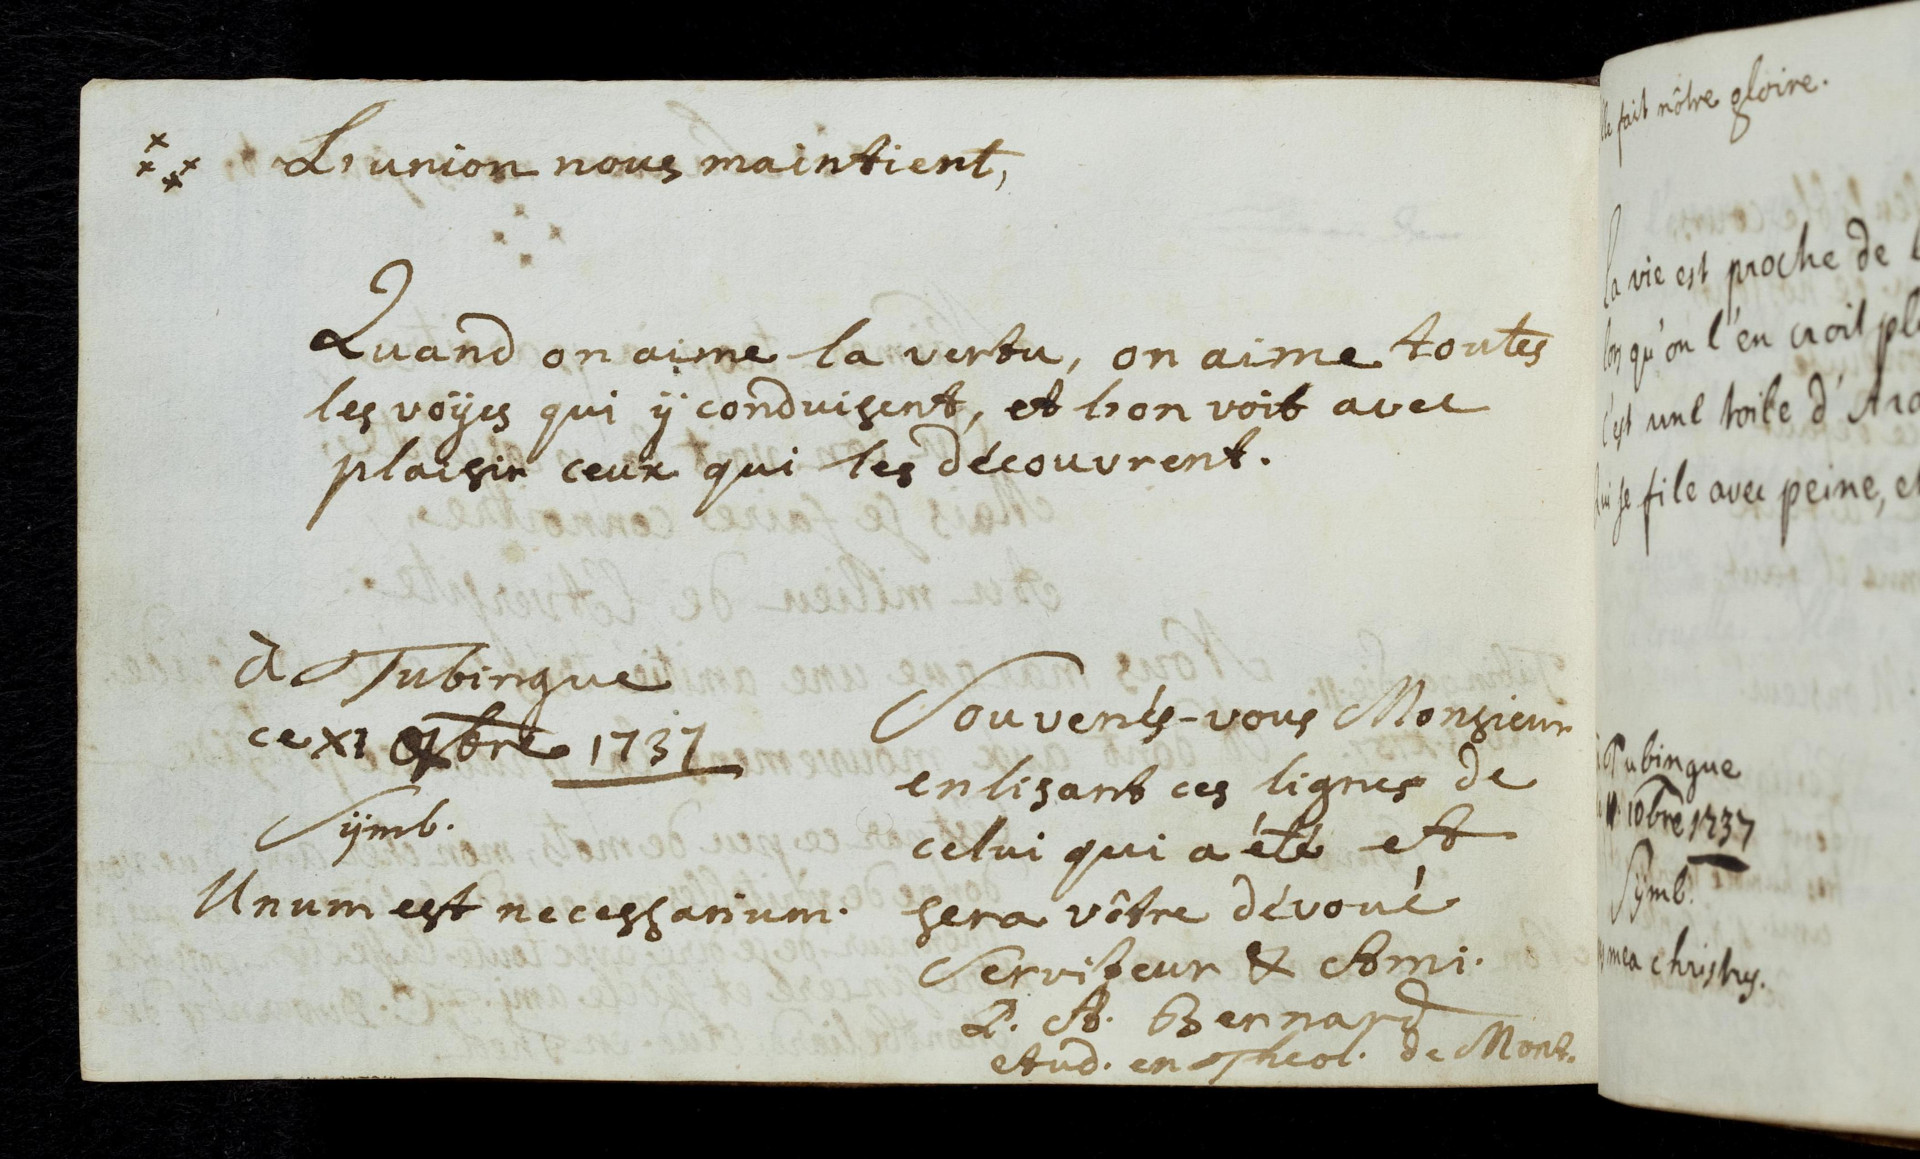 L'union nous maintient,
Quand on aime la vertu, on aime toutes
les voÿes qui ÿ conduisent, et l'on voit avec
plaisir ceux qui les découvrent.
à Tubingue
ce XI bre 1737
Sÿmb.
Unum est necessarium.
Souvenés-vous Monsieur
en lisant ces lignes de
celui qui a été et
sera vôtre dévoué
Serviteur & Ami.
P. A. Bernard
etud. en Theol. de Mont.
fait nôtre gloire.
la vie est proche de
qu'on l'en croit
c'est une toile d'
se file avec peine, et
Tubingue
10bre 1737
Sÿmb.
mea christus.